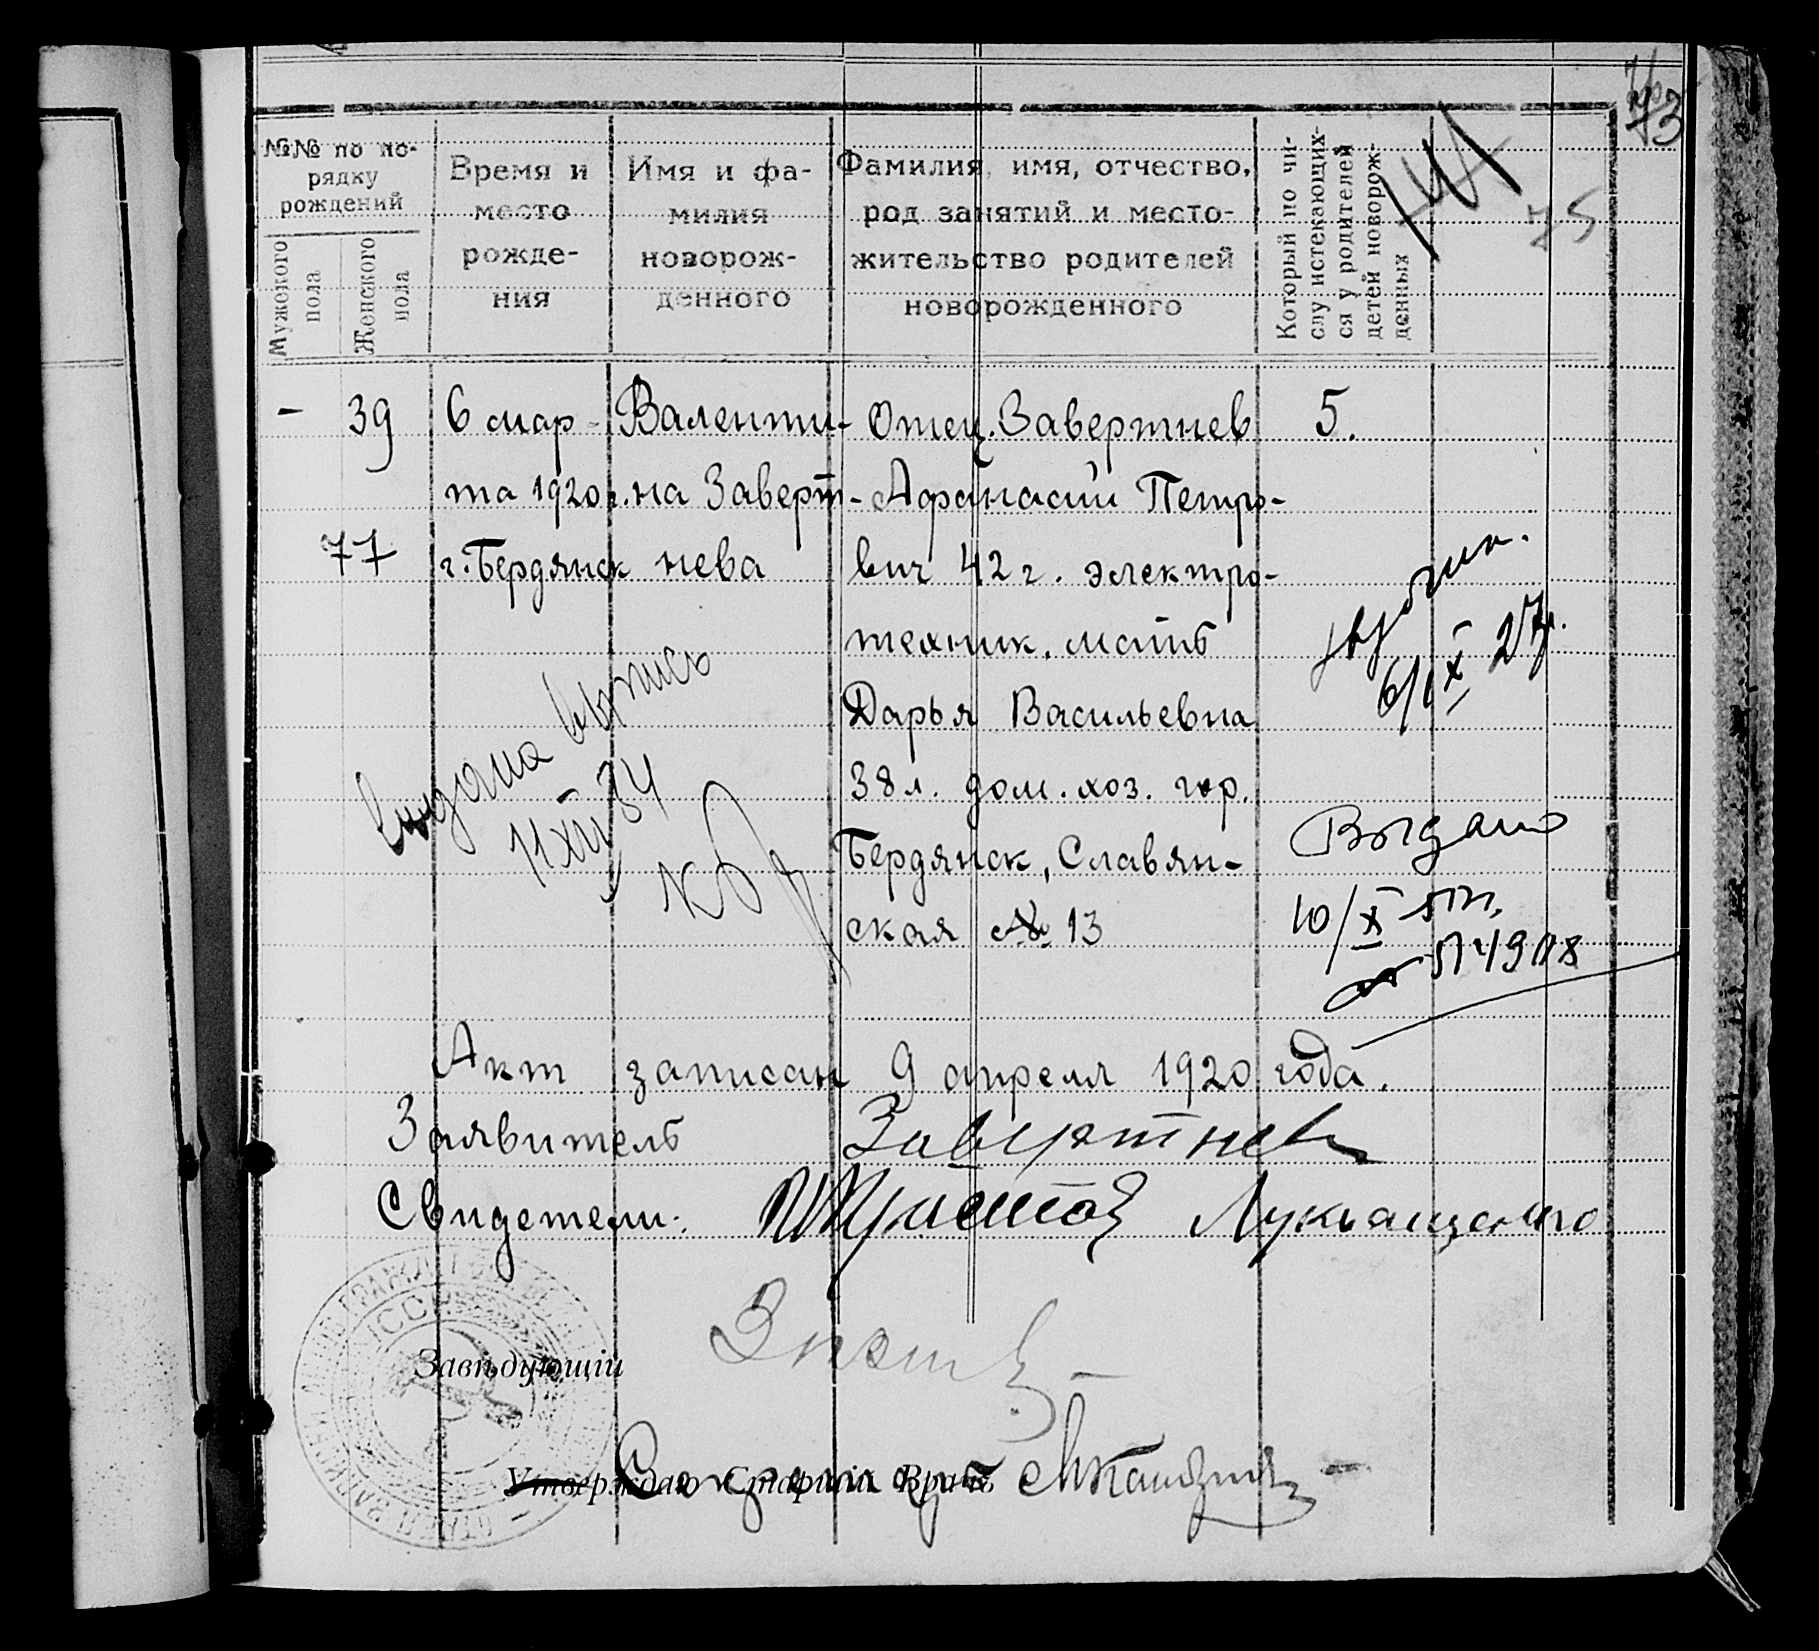 73
75
№№ по по-
рядку
рождений
Мужского
пола
Женского
пола
Время и
место
рожде-
ния
Имя и фа-
милия
новорож-
денного
Фамилия, имя, отчество,
род занятий и место-
жительство родителей
новорожденного
Который по чи-
слу истекающих-
ся у родителей
детей новорож-
денных
- 39 6 мар- Валенти- Отец. Завертнев 5.
та 1920 г. на Заверт- Афанасий Петро-
77 г. Бердянск нева вич 42 г. электро-
техник. мать
Дарья Васильевна
38 л. дом. хоз. гор.
Бердянск, Славян-
ская № 13
Выдана выпись
11 XII 34
Выдано
10/X
Акт записан 9 апреля 1920 года.
Заявитель Завертнев
Свидетели: Лукьященко
Завѣдующій
Утверждаю Старшій Врачъ